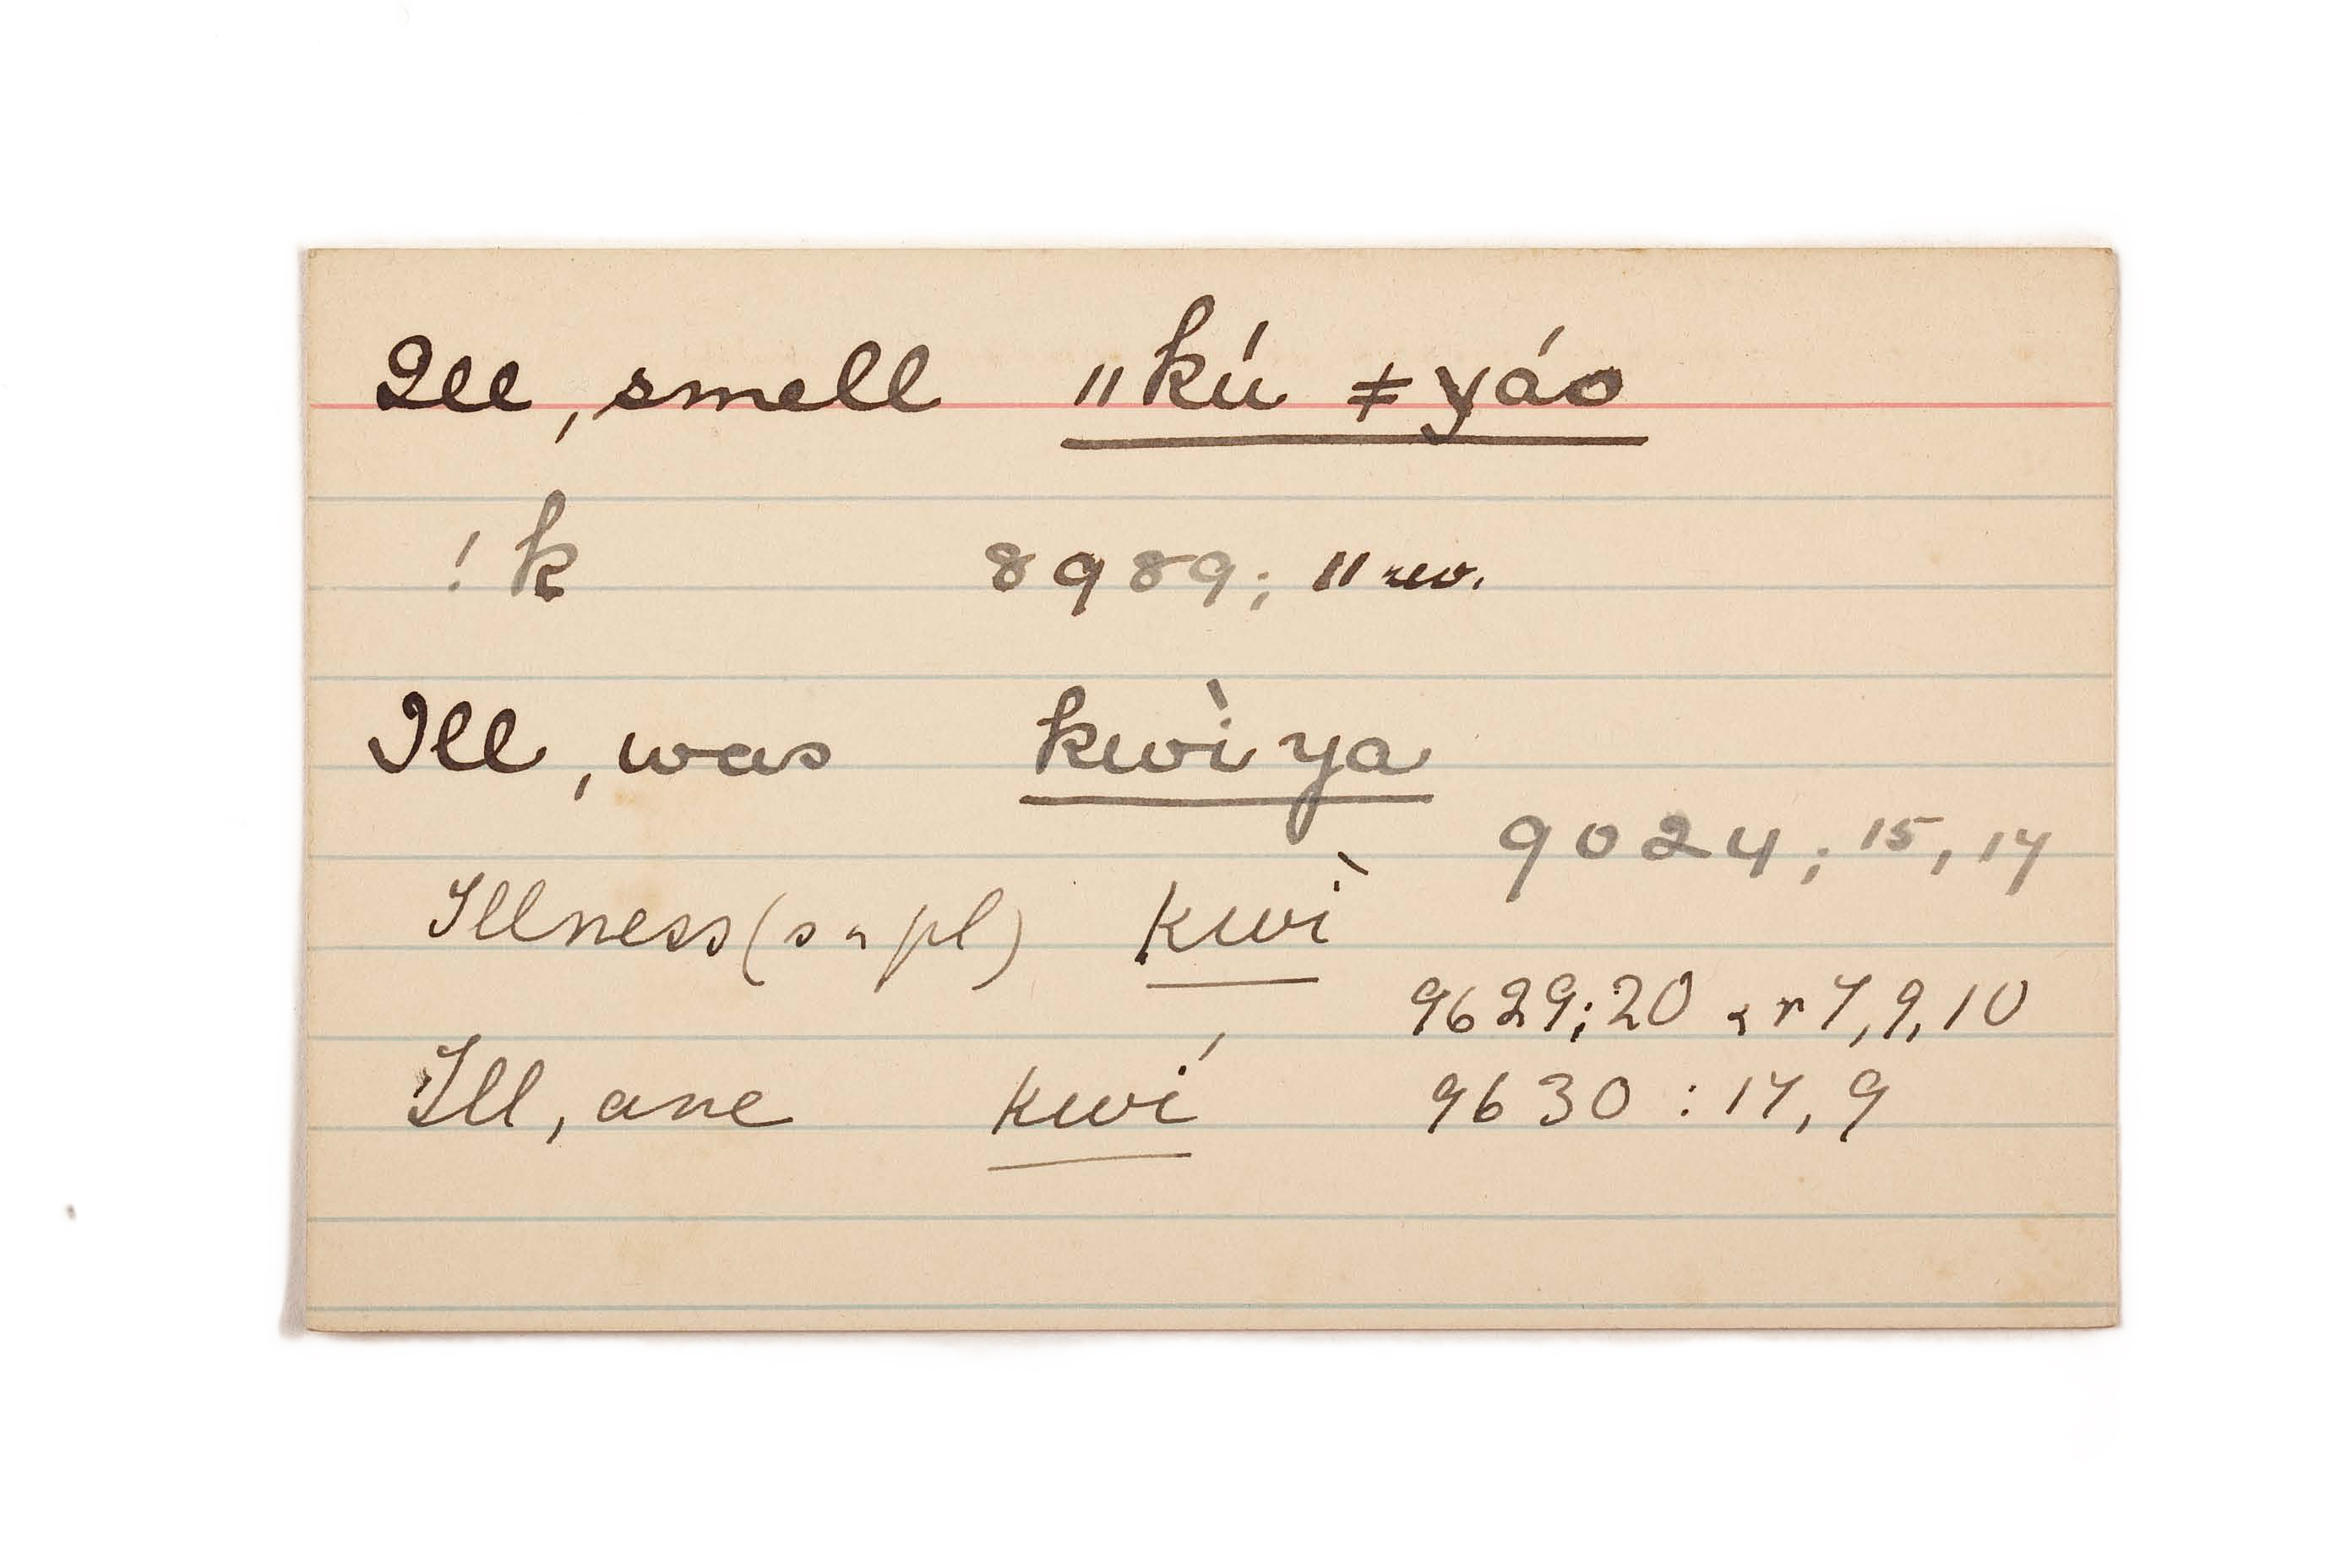 Ill, smell ‖kú ǂyáo
!k 8989; 11 rev.
Ill, was kwìya
9024; 15, 17
Illness (s & pl) kwì
9629; 20 & r 7, 9, 10
Ill, are kwí 9630 : 17, 9